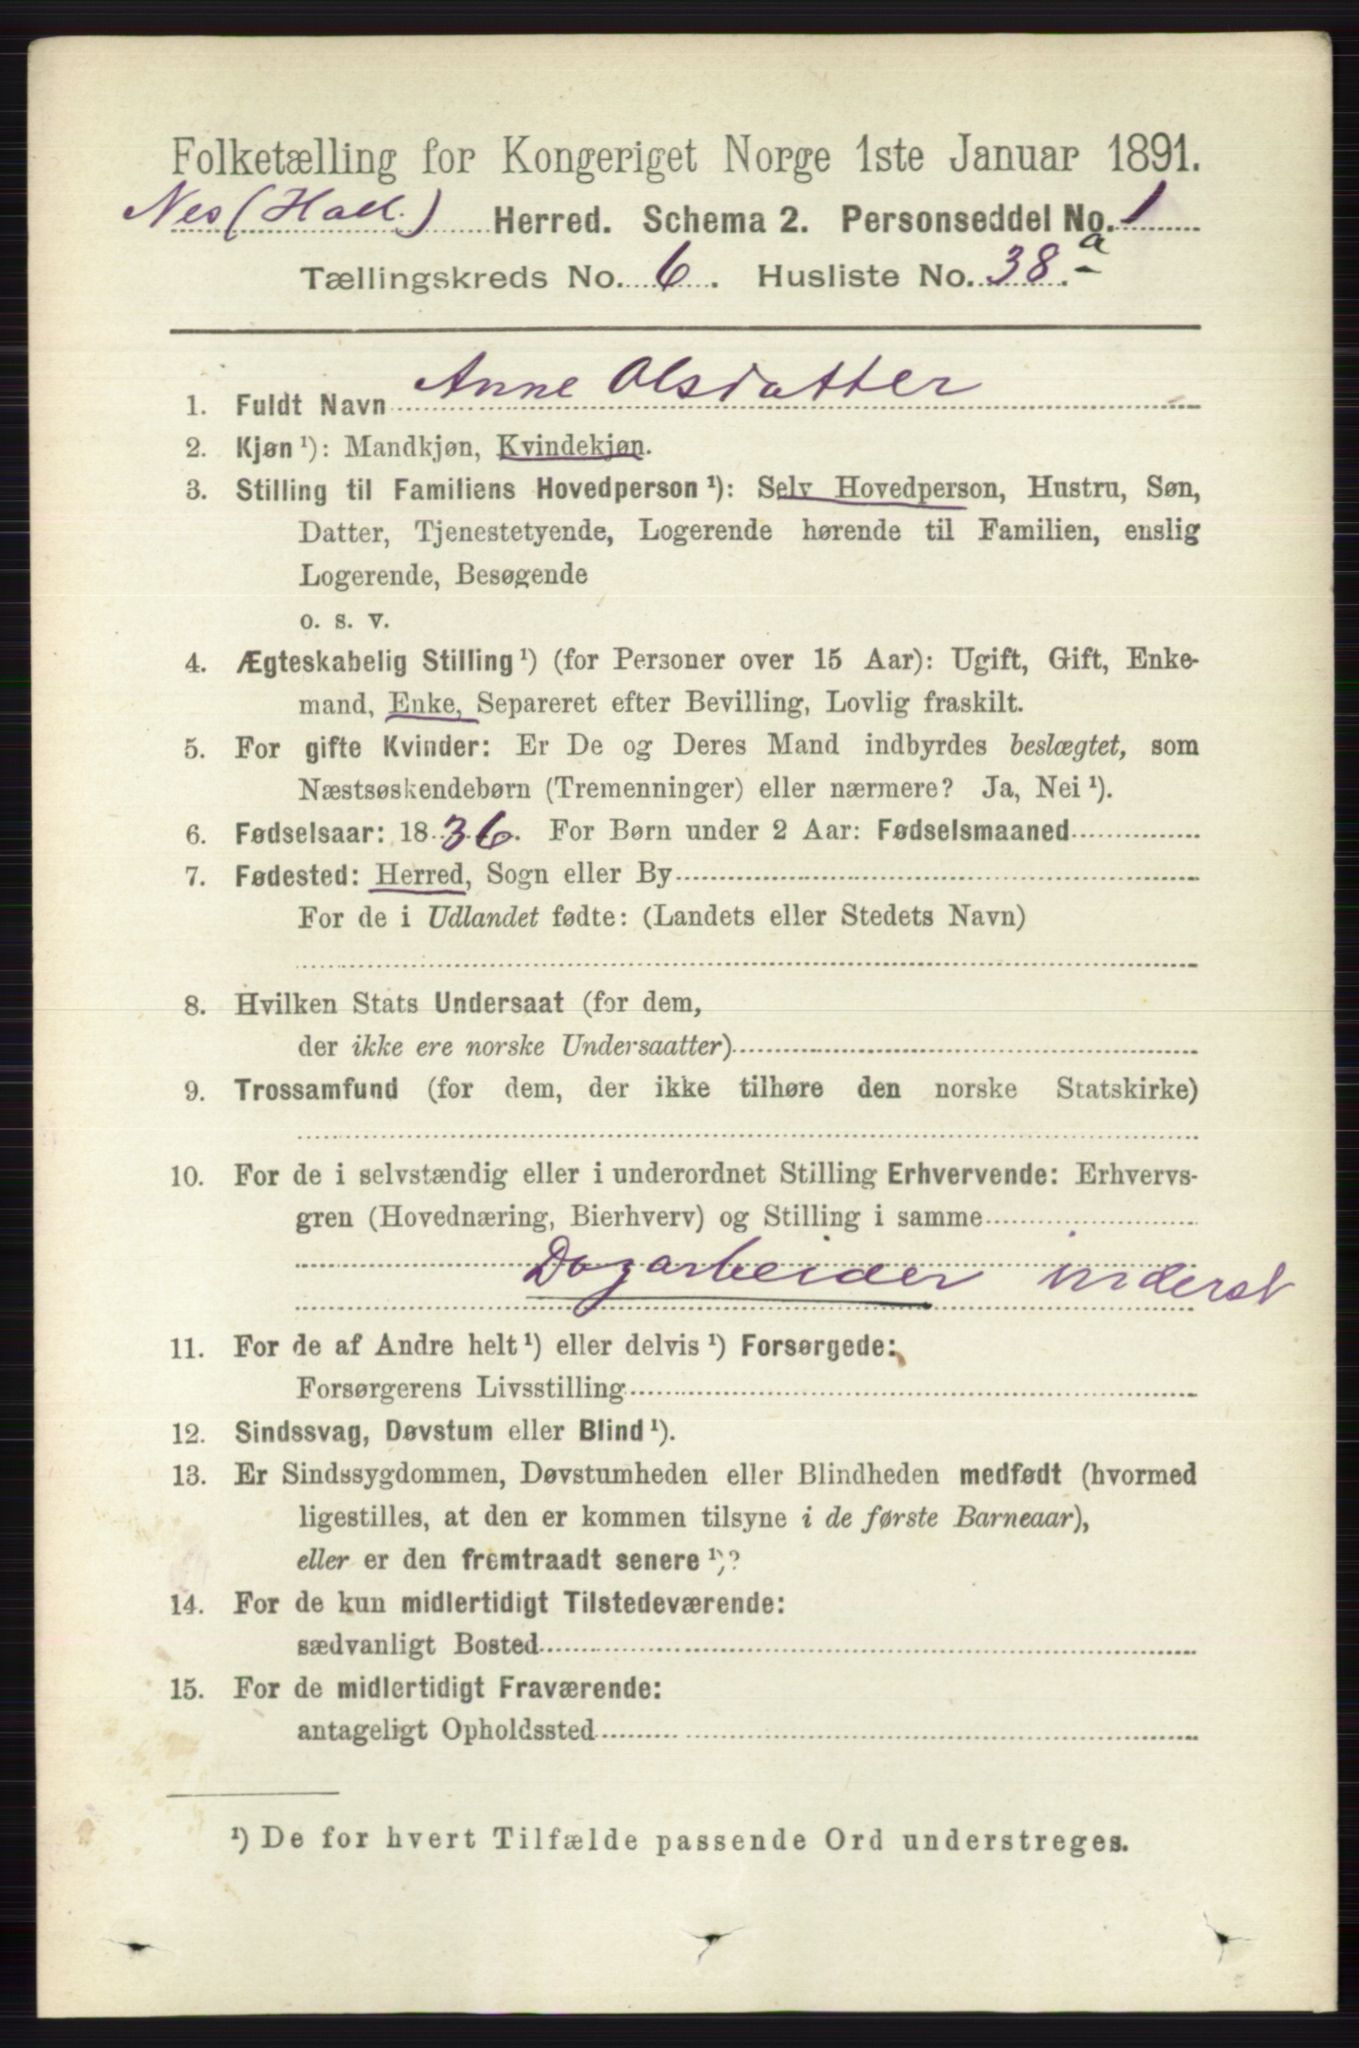 Folketælling for Kongeriget Norge 1ste Januar 1891.
Nes (Hall.) Herred. Schema 2. Personseddel No. 1
Tællingskreds No. 6. Husliste No. 38.a
1. Fuldt Navn Anne Olsdatter
2. Kjøn ¹): Mandkjøn, Kvindekjøn.
3. Stilling til Familiens Hovedperson ¹): Selv Hovedperson, Hustru, Søn,
Datter, Tjenestetyende, Logerende hørende til Familien, enslig
Logerende, Besøgende
o. s. v.
4. Ægteskabelig Stilling ¹) (for Personer over 15 Aar): Ugift, Gift, Enke-
mand, Enke, Separeret efter Bevilling, Lovlig fraskilt.
5. For gifte Kvinder: Er De og Deres Mand indbyrdes beslægtet, som
Næstsøskendebørn (Tremenninger) eller nærmere? Ja, Nei ¹).
6. Fødselsaar: 1836. For Børn under 2 Aar: Fødselsmaaned
7. Fødested: Herred, Sogn eller By
For de i Udlandet fødte: (Landets eller Stedets Navn)
8. Hvilken Stats Undersaat (for dem,
der ikke ere norske Undersaatter)
9. Trossamfund (for dem, der ikke tilhøre den norske Statskirke)
10. For de i selvstændig eller i underordnet Stilling Erhvervende: Erhvervs-
gren (Hovednæring, Bierhverv) og Stilling i samme
Dagarbeider inderst
11. For de af Andre helt ¹) eller delvis ¹) Forsørgede:
Forsørgerens Livsstilling
12. Sindssvag, Døvstum eller Blind ¹).
13. Er Sindssygdommen, Døvstumheden eller Blindheden medfødt (hvormed
ligestilles, at den er kommen tilsyne i de første Barneaar),
eller er den fremtraadt senere ¹)?
14. For de kun midlertidigt Tilstedeværende:
sædvanligt Bosted
15. For de midlertidigt Fraværende:
antageligt Opholdssted
¹) De for hvert Tilfælde passende Ord understreges.